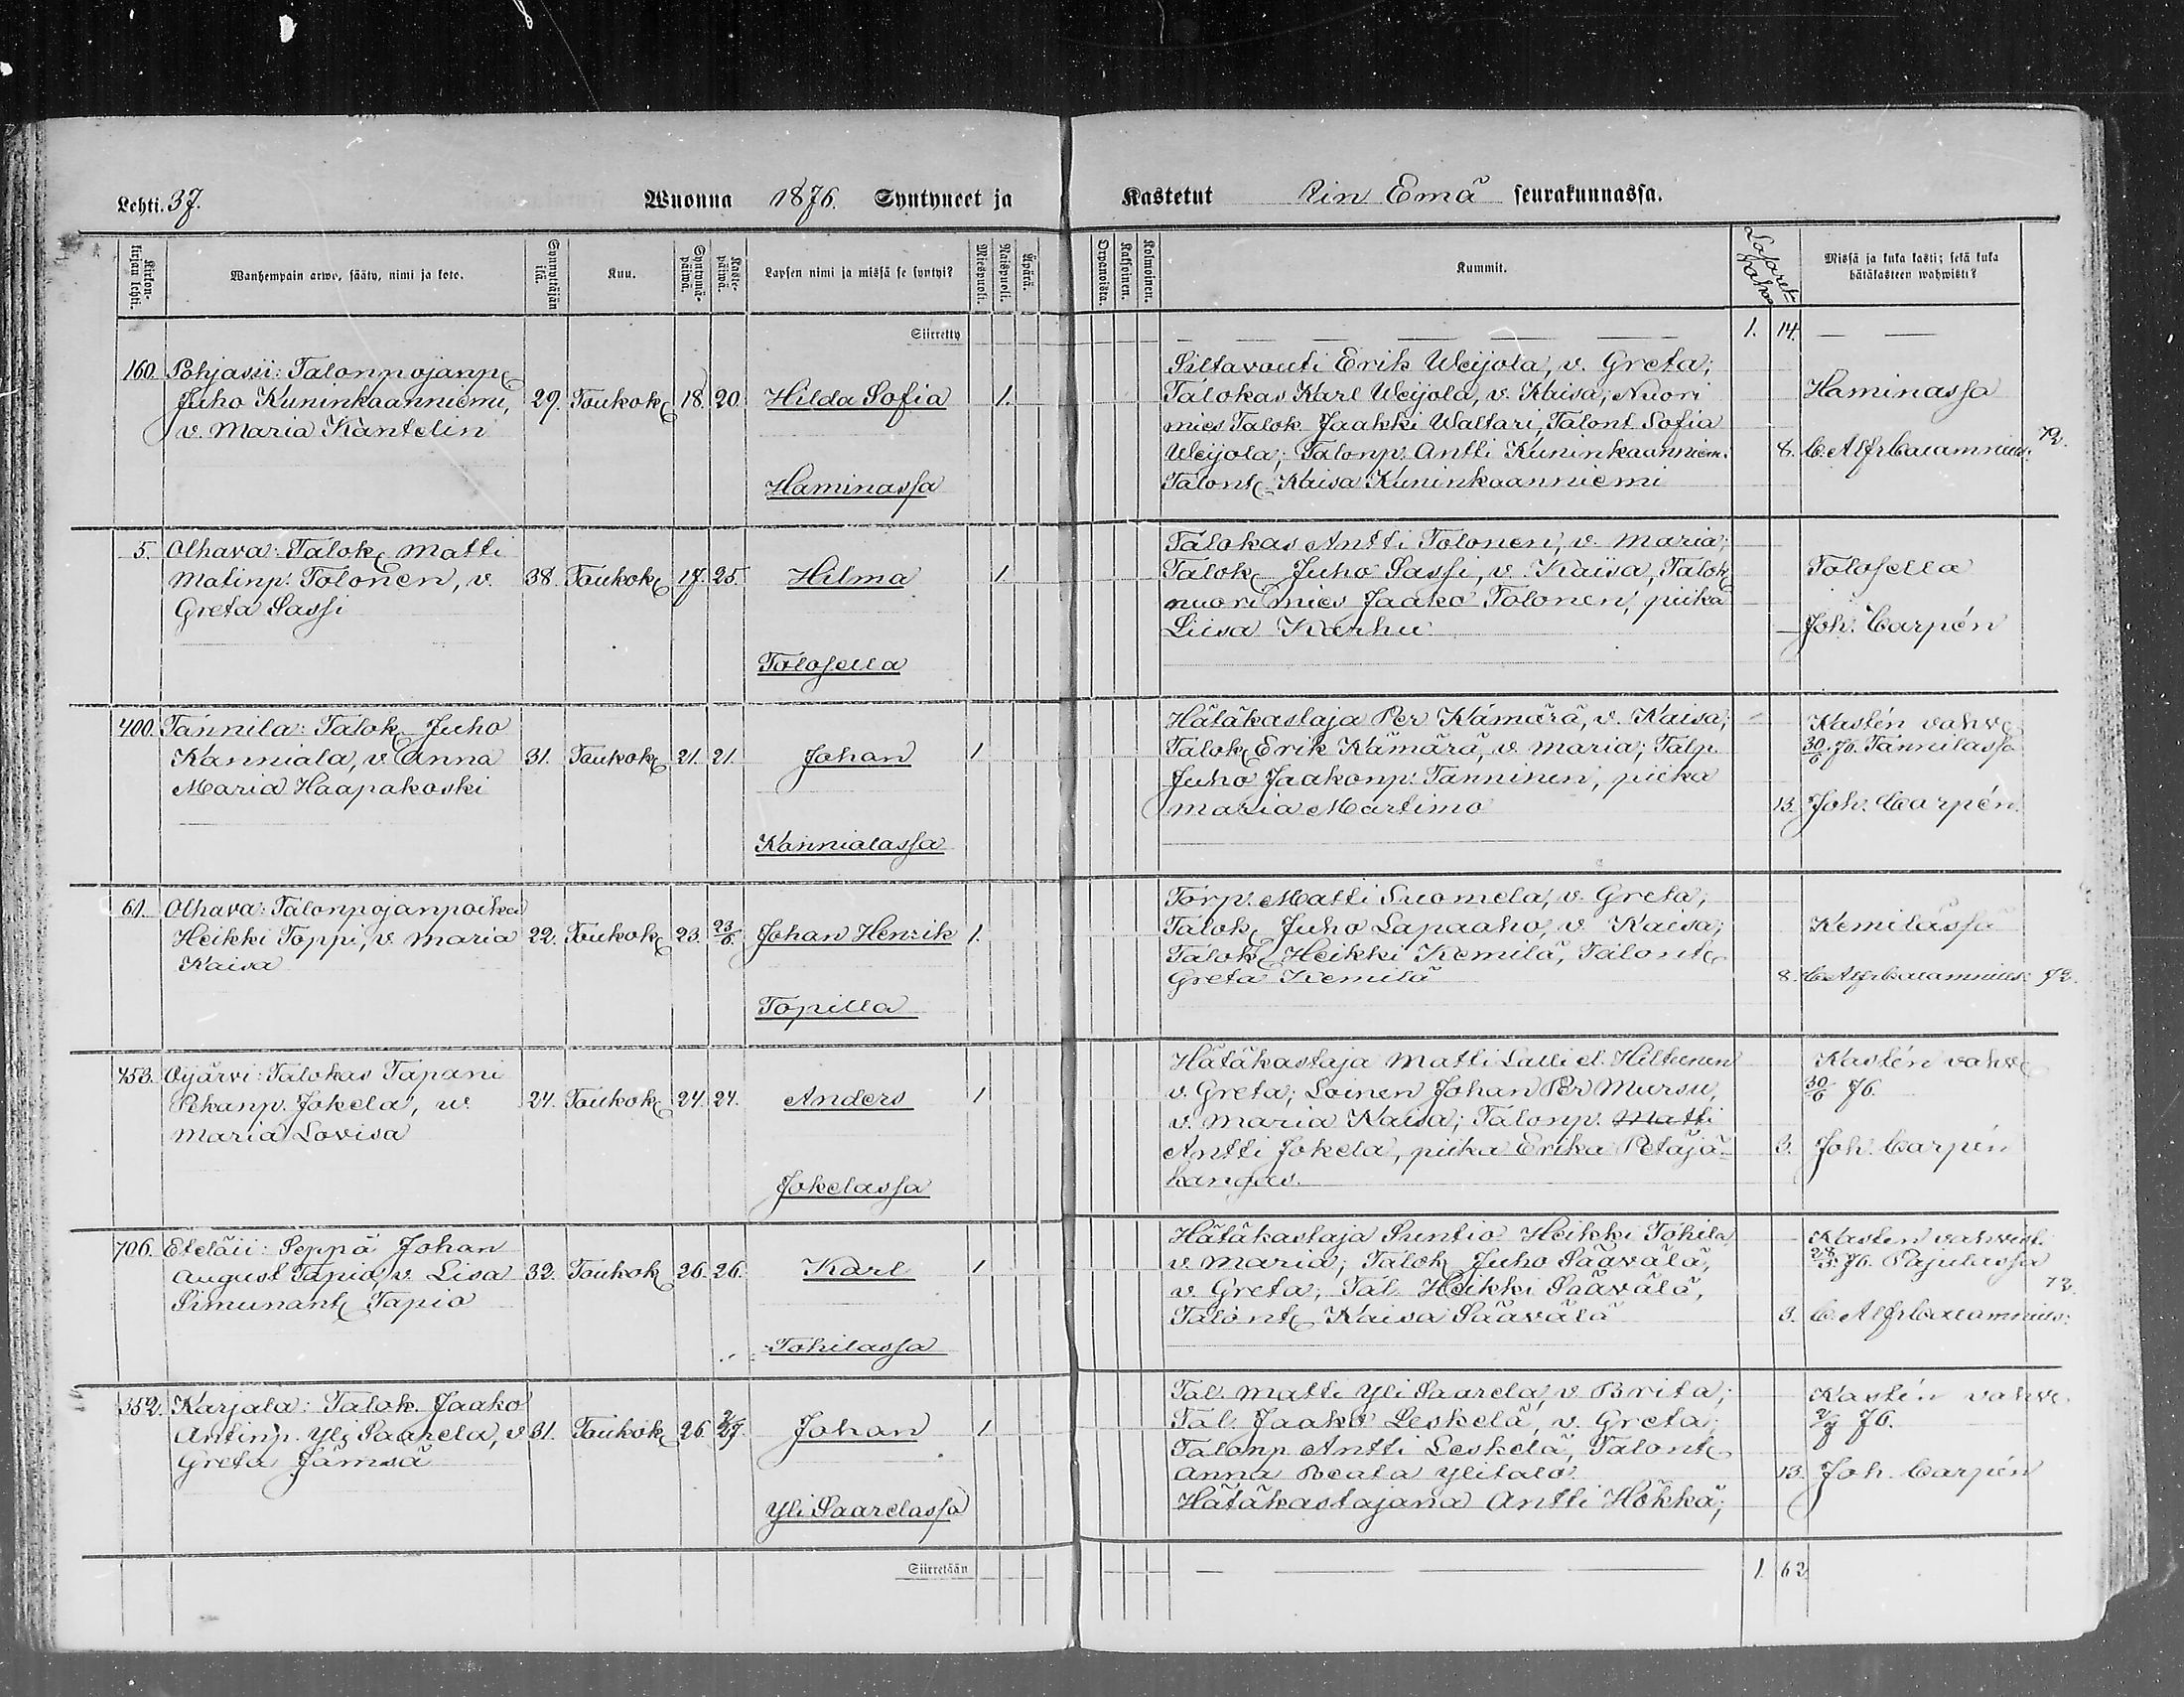 Lehti. 37. Wuonna 1876. Syntyneet ja Kastetut Iin Emä seurakunnassa.
Kirkonkirjan lehti. Wanhempain arwo, sääty, nimi ja koto. Synnyttäjän ikä. Kuu. Syntymäpäiwä. Kastepäiwä. Lapsen nimi ja missä se syntyi? Miespuoli. Waimopuoli. Äpärä. Orpanoista. Kaksoinen. Kolmoinen. Kummit. Missä ja kuka kasti; sekä kuka hätäkasteen wahwisti?
Siirretty 1. 14.
160. Pohjasii: Talonpojanp.
Juho Kuninkaanniemi,
v. Maria Kantelin
29. Toukok. 18. 20. Hilda Sofia 1.
Haminassa
Siltavouti Erik Weijola, v. Greta;
Talokas Karl Weijola, v. Kaisa; Nuori
mies Talok. Jaakki Waltari, Talont. Sofia
Weijola; Talonp. Antti Kuninkaanniem.
Talont. Kaisa Kuninkaanniemi
Haminassa
8. C. Alfr Calamnius.
5. Olhava: Talok. Matti
Matinp. Tolonen, v.
Greta Sassi
38. Toukok. 17. 25. Hilma 1.
Tolosella
Talokas Antti Tolonen, v. Maria;
Talok. Juho Sassi, v. Kaisa, Talok.
nuori mies Jaako Tolonen, piika
Liisa Karhu
Tolosella
Joh. Carpén
400. Tannila: Talok. Juho
Kanniala, v. Anna
Maria Haapakoski
31. Toukok. 21. 21. Johan 1
Kannialassa
Hätäkastaja Per Kämärä, v. Kaisa;
Talok. Erik Kämärä, v. Maria; Talp.
Juho Jaakonp. Tanninen, piika
Maria Martimo
Kastén vahv.
30/6 76. Tannilassa
13. Joh. Carpén.
61. Olhava: Talonpojanpoika
Heikki Toppi, v. Maria
Kaisa
22. Toukok. 23. Johan Henrik 1.
Topilla
Torp. Matti Suomela, v. Greta;
Talok. Juho Lapaaho, v. Kaisa;
Talok. Heikki Kemilä, Talont.
Greta Kemilä
Kemilässä
8. C. Alfr Calamnius.
453. Oijärvi: Talokas Tapani
Pekanp. Jokela, w.
Maria Lovisa
24. Toukok. 24. 24. Anders 1
Jokelassa
Hätäkastaja Matti Lalli el. Hiltunen
v. Greta; Loinen Johan Per Mursu,
v. Maria Kaisa; Talonp. Matti
Antti Jokela, piika Erika Petäjä-
kangas.
Kastén vahv.
30/6 76.
3. Joh. Carpén
706. Eteläii: Seppä Johan
August Tapio, v. Lisa
Simunant. Tapio
32. Toukok. 26. 26. Karl 1
Tohilassa
Hätäkastaja Suntio Heikki Tohila
v. Maria; Talok. Juho Säävälä,
v. Greta; Tal. Heikki Säävälä,
Talont. Kaisa Säävälä
Kasten vahvist.
28/5 76. Pajulassa
3. C. Alfr Calamnius.
352. Karjala: Talok. Jaako
Antinp. Yli Saarela, v.
Greta Jämsä
31. Toukok. 26. Johan 1
Yli Saarelassa
Tal. Matti Yli Saarela, v. Brita;
Tal. Jaako Leskelä, v. Greta;
Talonp. Antti Leskelä, Talont.
Anna Beata Ylitalo
Hätäkastajana Antti Hökkä;
Kastén vahv.
2/7 76.
13. Joh. Carpén
Siirretään 1 62